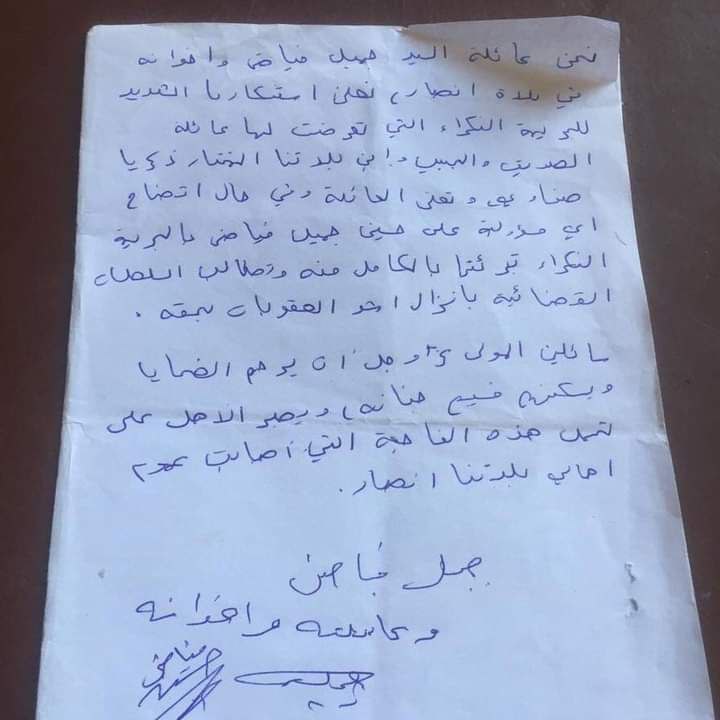 نحن عائلة السيد جميل فياض واخوانه
في بلدة انصار، نعلن استنكارنا الشديد
للجريمة النكراء التي تعرضت لها عائلة
الصديق والحبيب وابن بلدتنا المختار زكريا
صفاوي وتعلن العائلة وفي حال اتضاح
اي مسؤولية على حسين جميل فياض بالجريمة
النكراء تبرئتها بالكامل منه وتطالب السلطات
القضائية بانزال اشد العقوبات بحقه .
سائلين المولى عز وجل ان يرحم الضحايا
ويسكنهم فسيح جنانه، ويصبر الاهل على
تحمل هذه الفاجعة التي أصابت عموم
اهالي بلدتنا انصار.
جميل فياض
وعائلته واخوانه
جميل
فياض